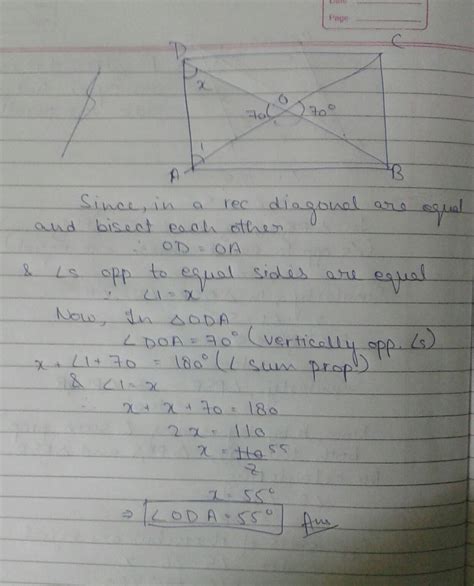 Date
Page
D
C
x
O
70
70°
1
A
B
Since, in a rec diagonal are equal
and bisect each other
∴ OD = OA
& ∠s opp to equal sides are equal
∴ ∠1 = x
Now, In △ODA
∠DOA = 70° (vertically opp. ∠s)
x + ∠1 + 70 = 180° (∠ sum prop)
& ∠1 = x
∴ x + x + 70 = 180
2x = 110
x = 110 55
2
x = 55°
⇒ ∠ODA = 55° Ans